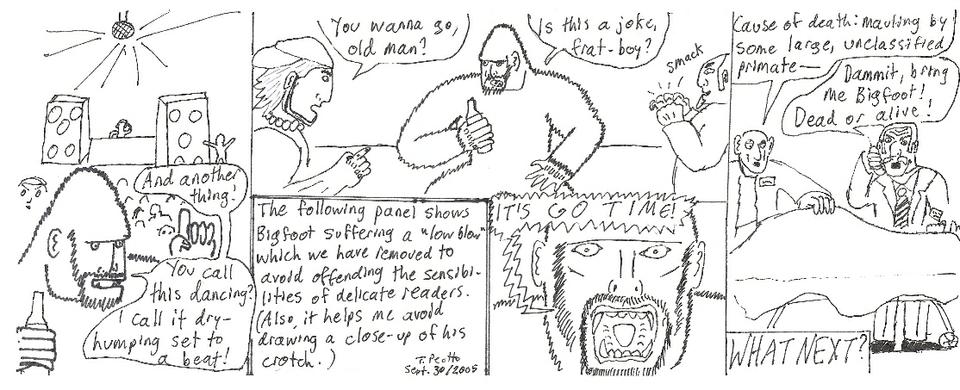 And another
thing!
You call
this dancing?
I call it dry-
humping set to
a beat!
You wanna go,
old man?
Is this a joke,
frat-boy?
smack
The following panel shows
Bigfoot suffering a "low blow"
which we have removed to
avoid offending the sensibi-
lities of delicate readers.
(Also, it helps me avoid
drawing a close-up of his
crotch.)
T. Peotto
Sept. 30/2005
IT'S GO TIME!
Cause of death: mauling by
some large, unclassified
primate—
Dammit, bring
me Bigfoot!
Dead or alive!
WHAT NEXT?